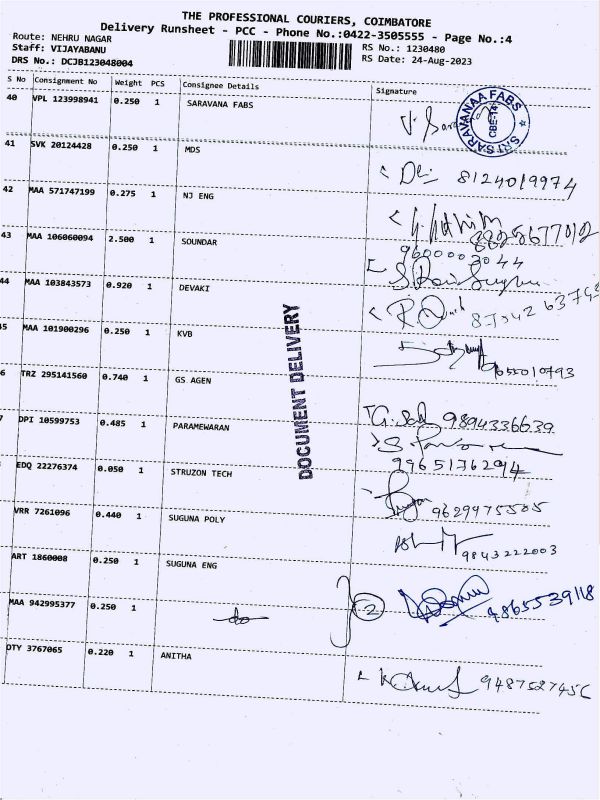 THE PROFESSIONAL COURIERS, COIMBATORE
Delivery Runsheet - PCC - Phone No.:0422-3505555 - Page No.:4
Route: NEHRU NAGAR
RS No.: 1230480
Staff: VIJAYABANU
RS Date: 24-Aug-2023
DRS No.: DCJB123048004
S No Consignment No Weight PCS Consignee Details Signature
40 VPL 123998941 0.250 1 SARAVANA FABS
SRI SARAVANAA FABS CBE-14
41 SVK 20124428 0.250 1 MDS 8124019974
42 MAA 571747199 0.275 1 NJ ENG
43 MAA 106060094 2.500 1 SOUNDAR 9600003044
44 MAA 103843573 0.920 1 DEVAKI
45 MAA 101900296 0.250 1 KVB 9655010793
6 TRZ 295141560 0.740 1 GS AGEN 9894336639
7 DPI 10599753 0.485 1 PARAMEWARAN 9965176294
EDQ 22276374 0.050 1 STRUZON TECH 9629975505
VRR 7261096 0.440 1 SUGUNA POLY 9843222003
ART 1860008 0.250 1 SUGUNA ENG
MAA 942995377 0.250 1 do 2 9865539118
OTY 3767065 0.220 1 ANITHA 9487527456
DOCUMENT DELIVERY